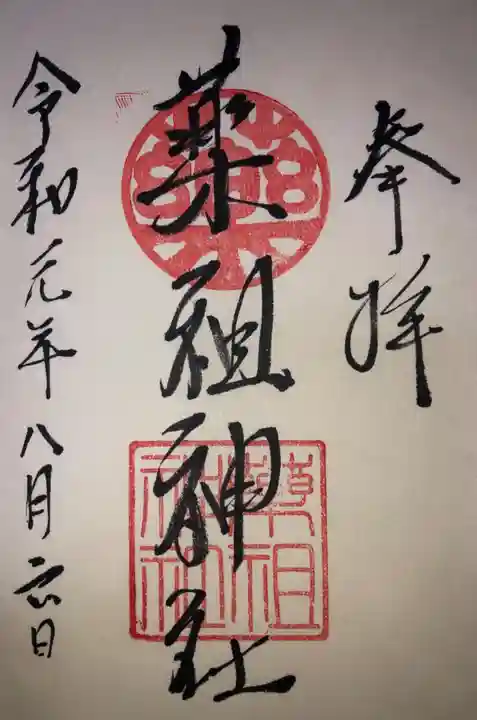 奉拝
薬祖神社
令和元年八月六日
藥祖
神社